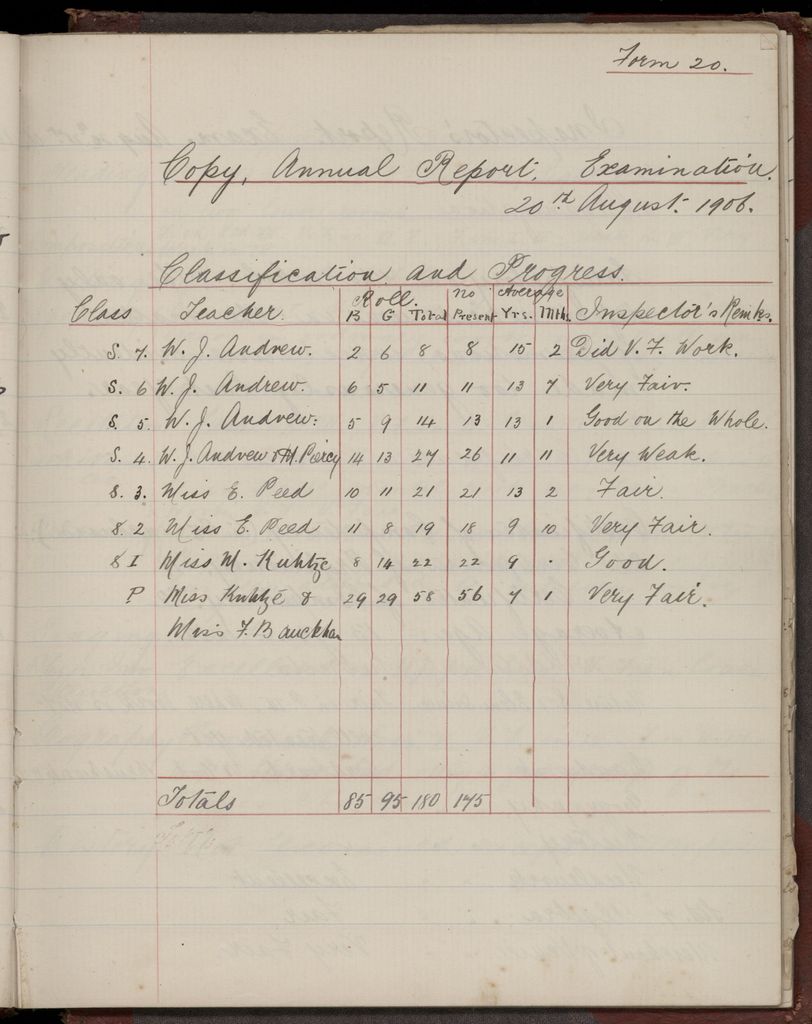 Form 20.
Copy, Annual Report, Examination.
20th August. 1906.
Classification and Progress.
Class Teacher. Roll. B G Total No Present Average Yrs. Mths. Inspector's Remks.
S. 7. W. J. Andrew. 2 6 8 8 15 2 Did V. F. Work.
S. 6 W. J. Andrew. 6 5 11 11 13 7 Very Fair.
S. 5. W. J. Andrew. 5 9 14 13 13 1 Good on the Whole.
S. 4. W. J. Andrew & M. Piercy 14 13 27 26 11 11 Very Weak.
S. 3. Miss E. Peed 10 11 21 21 13 2 Fair.
S. 2 Miss E. Peed 11 8 19 18 9 10 Very Fair.
S I Miss M. Kuhtze 8 14 22 22 9 . Good.
P Miss Kuhtzé & 29 29 58 56 7 1 Very Fair.
Miss F. Bauckham
Totals 85 95 180 175